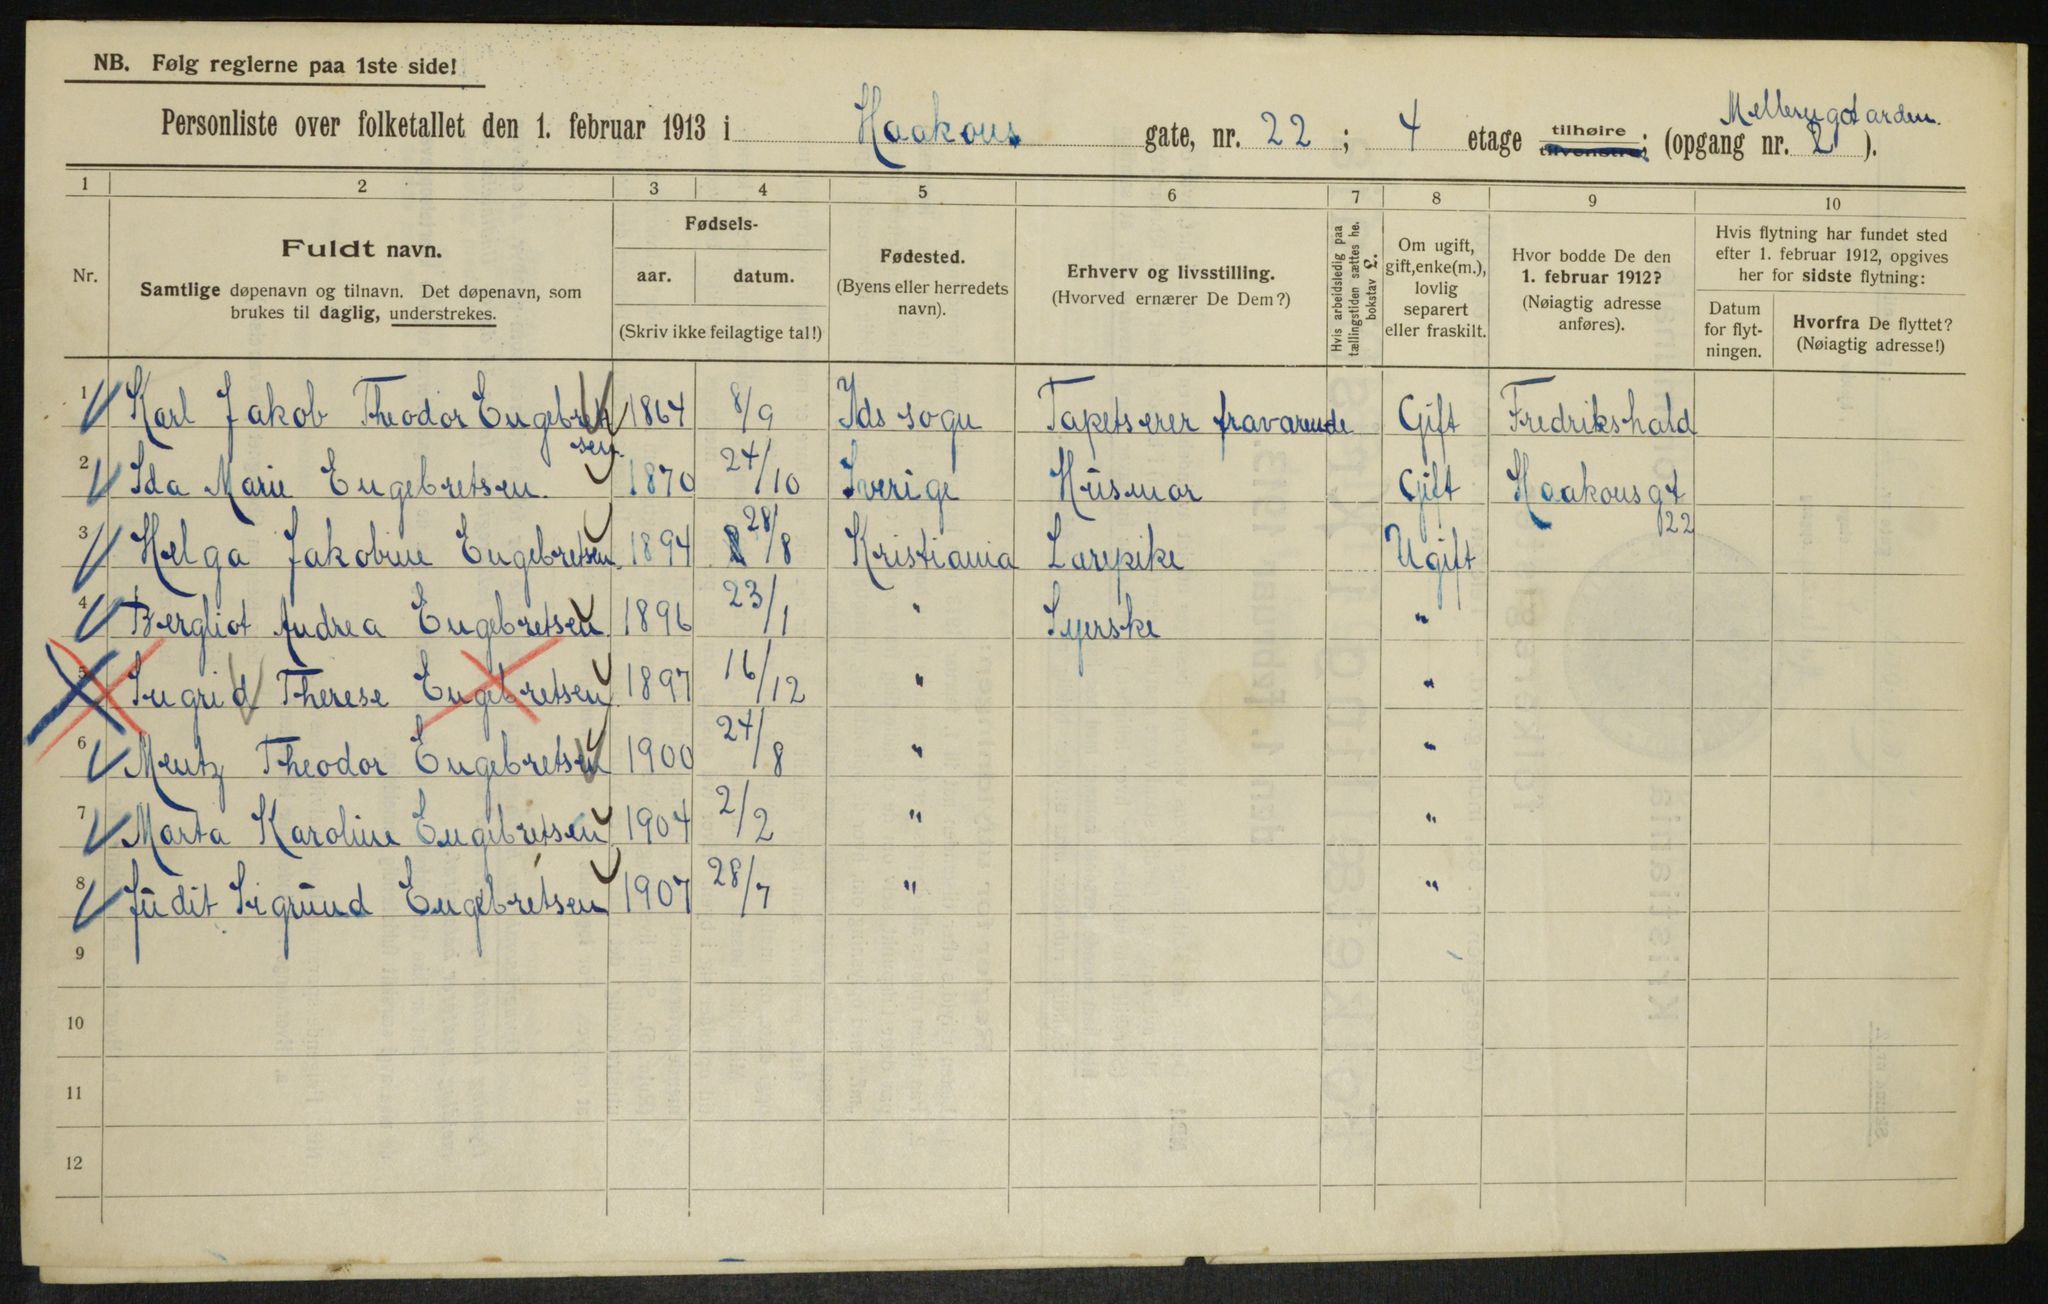 NB. Følg reglerne paa 1ste side!
Personliste over folketallet den 1. februar 1913 i Haakons gate, nr. 22 ; 4 etage tilhøire tilvenstre; (opgang nr. 2 ).
1 2 3 4 5 6 7 8 9 10
Nr.
Fuldt navn.
Samtlige døpenavn og tilnavn. Det døpenavn, som
brukes til daglig, understrekes.
Fødsels-
aar. datum.
(Skriv ikke feilagtige tal!)
Fødested.
(Byens eller herredets
navn).
Erhverv og livsstilling.
(Hvorved ernærer De Dem?)
Hvis arbeidsledig paa
tællingstiden sættes he.
bokstav L.
Om ugift,
gift, enke(m.),
lovlig
separert
eller fraskilt.
Hvor bodde De den
1. februar 1912?
(Nøiagtig adresse
anføres).
Hvis flytning har fundet sted
efter 1. februar 1912, opgives
her for sidste flytning:
Datum
for flyt-
ningen.
Hvorfra De flyttet?
(Nøiagtig adresse!)
1 Karl Jakob Theodor Engebret 1864 8/9 Ids sogn Tapetserer fraværende Gift Fredrikshald
sen.
2 Ida Marie Engebretsen. 1870 24/10 Sverige Husmor Gift Haakonsgt
22
3 Helga Jakobine Engebretsen. 1894 28/8 Kristiania Larepike Ugift
4 Bergliot Andrea Engebretsen 1896 23/1 " Syerske "
5 Ingrid Therese Engebretsen 1897 16/12 " "
6 Mentz Theodor Engebretsen 1900 24/8 " "
7 Marta Karoline Engebretsen 1904 2/2 " "
8 Judit Sigrund Engebretsen 1907 28/7 " "
9
10
11
12